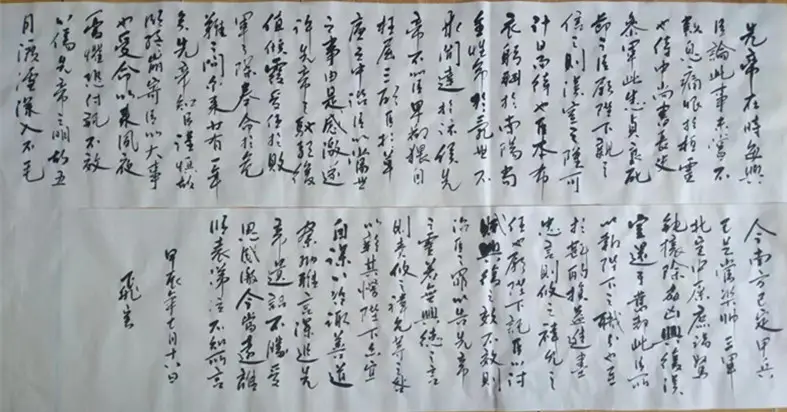 先帝在時每與
臣論此事未嘗不
歎息痛恨於桓靈
也侍中尚書長史
參軍此悉貞良死
節之臣願陛下親之
信之則漢室之隆可
計日而待也臣本布
衣躬耕於南陽苟
全性命於亂世不
求聞達於諸侯先
帝不以臣卑鄙猥自
枉屈三顧臣於草
廬之中諮臣以當世
之事由是感激遂
許先帝以驅馳後
值傾覆受任於敗
軍之際奉命於危
難之間爾來廿有一年
矣先帝知臣謹慎故
臨崩寄臣以大事
也受命以來夙夜
憂懼恐付託不效
以傷先帝之明故五
月渡瀘深入不毛
今南方已定甲兵
已足當獎帥三軍
北定中原庶竭駑
鈍攘除奸凶興復漢
室還於舊都此臣所
以報陛下之職分也至
於斟酌損益進盡
忠言則攸之禕允之
任也願陛下託臣以討
賊興復之效不效則
治臣之罪以告先帝
之靈若無興德之言
則責攸之禕允等之咎
以彰其慢陛下亦宜
自謀以諮諏善道
察納雅言深追先
帝遺詔不勝受
恩感激今當遠離
臨表涕泣不知所言
甲辰年七月十六日